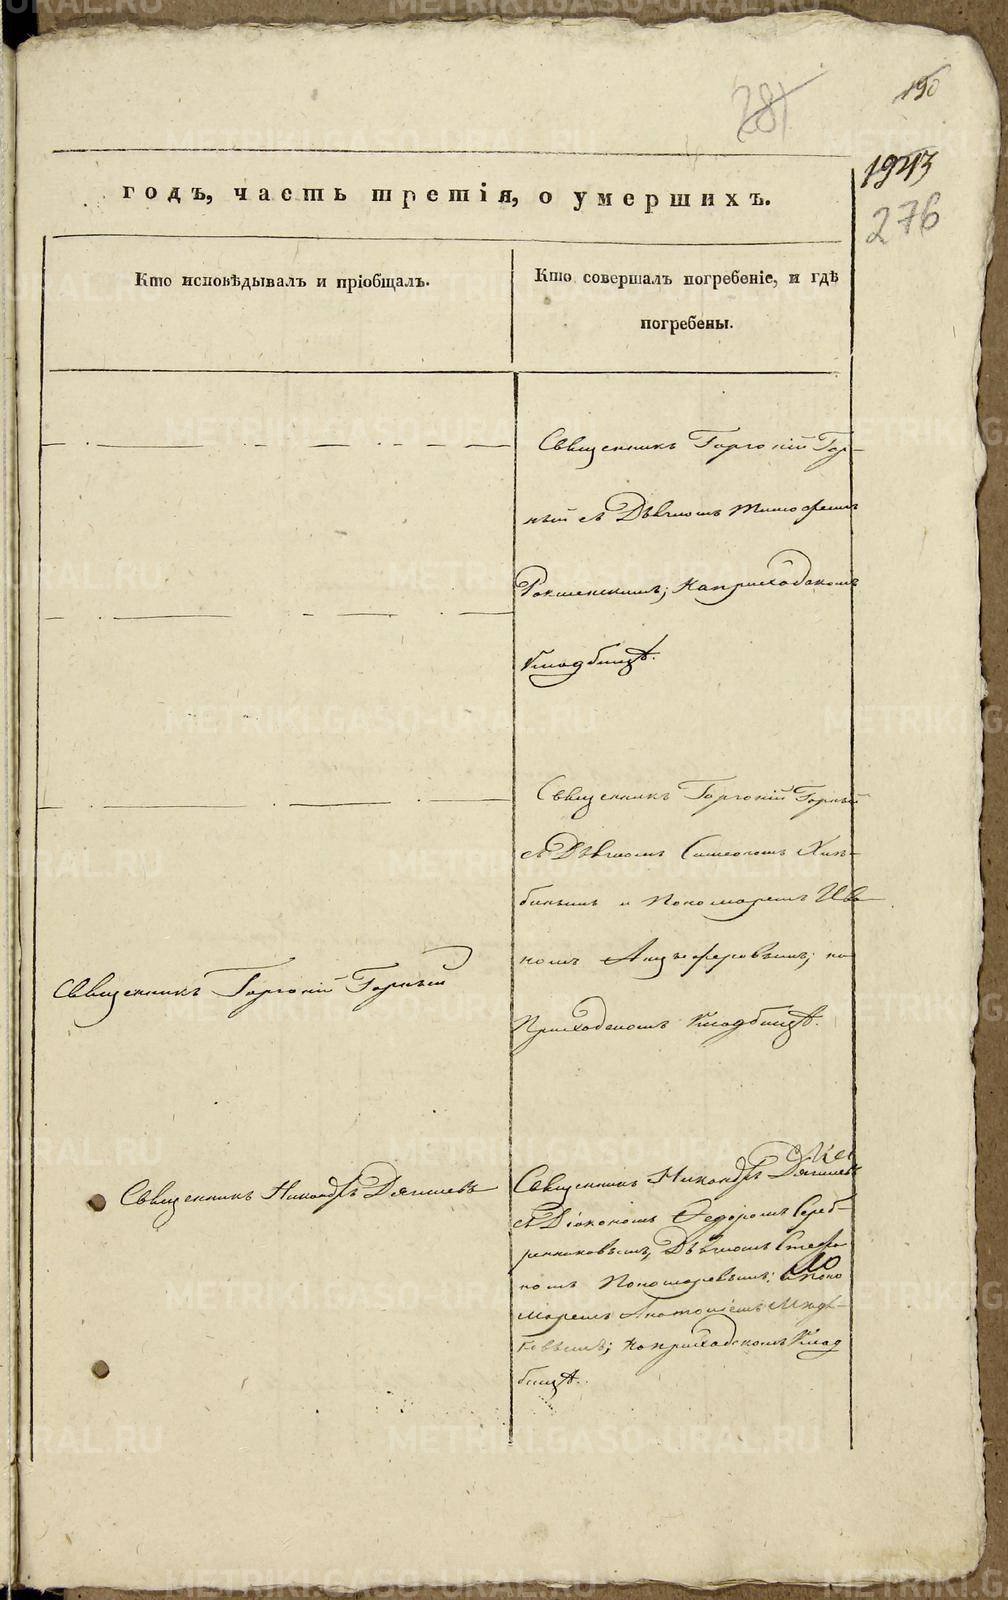 190
281
1943
276
годъ, часть третія, о умершихъ.
Кто исповѣдывалъ и пріобщалъ.
Кто совершалъ погребеніе, и гдѣ
погребены.
Священникъ Горгоній Гор-
ный съ Дьячкомъ Тимофеемъ
на приходскомъ
Кладбищѣ.
Священникъ Горгоній Горный
съ Дьячкомъ Симеономъ
и Пономаремъ Ива
номъ Анцыферовымъ; на
Приходскомъ Кладбищѣ.
Священникъ Горгоній Горный
Священникъ Никандръ Дягилевъ
Священникъ Никандръ Дягилевъ
съ Діакономъ Федоромъ Сереб-
ренниковымъ, Дьячкомъ Стефа
номъ Пономаревымъ; и Поно
маремъ Анатоліемъ
на приходскомъ Клад
бищѣ.
METRIKI.GASO-URAL.RU